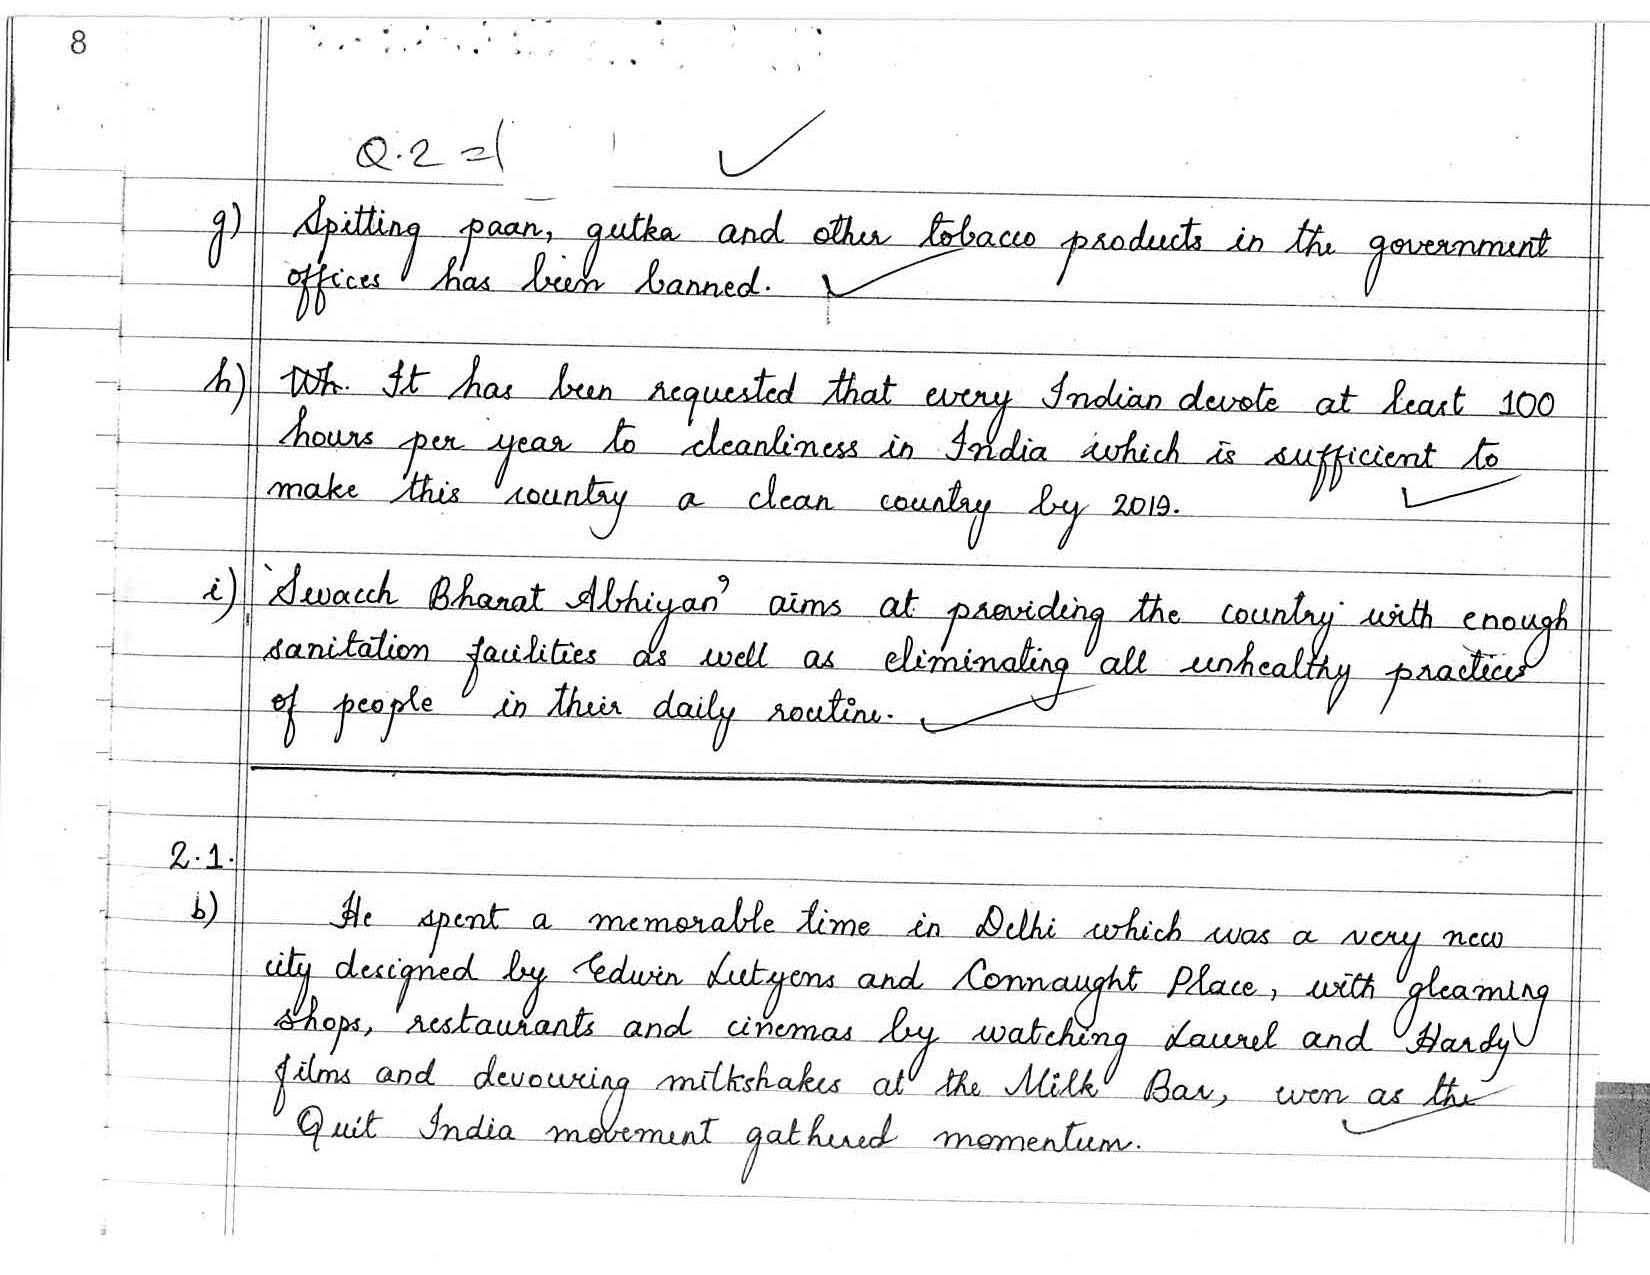 8
Q.2 =
g) Spitting paan, gutka and other tobacco products in the government
offices has been banned.
h) Wh. It has been requested that every Indian devote at least 100
hours per year to cleanliness in India which is sufficient to
make this country a clean country by 2019.
i) 'Swacch Bharat Abhiyan' aims at providing the country with enough
sanitation facilities as well as eliminating all unhealthy practices
of people in their daily routine.
2.1.
b) He spent a memorable time in Delhi which was a very new
city designed by Edwin Lutyens and Connaught Place, with gleaming
shops, restaurants and cinemas by watching Laurel and Hardy
films and devouring milkshakes at the Milk Bar, even as the
Quit India movement gathered momentum.